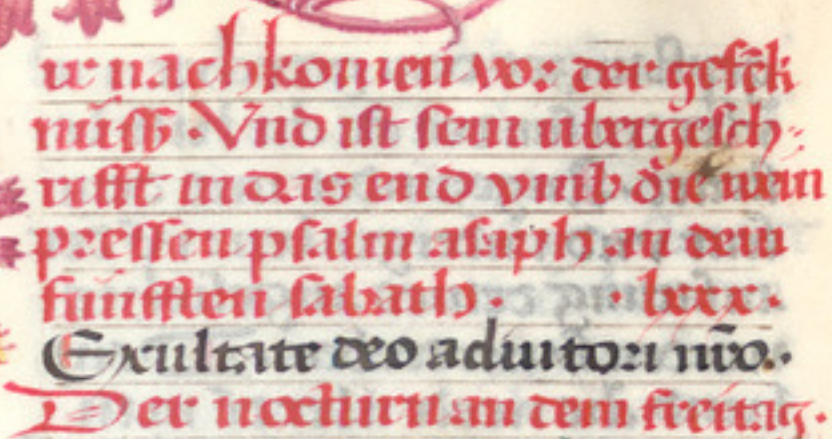 ir nachkomen vor der gefēk
nūsß · Vnd ist sein ubergesch-
rifft in das end vmb die wein
pressen psalm asaph an dem
fünfften sabath · · lxxx ·
Exultate deo adiutori nr̄o ·
Der nocturn an dem freitag ·